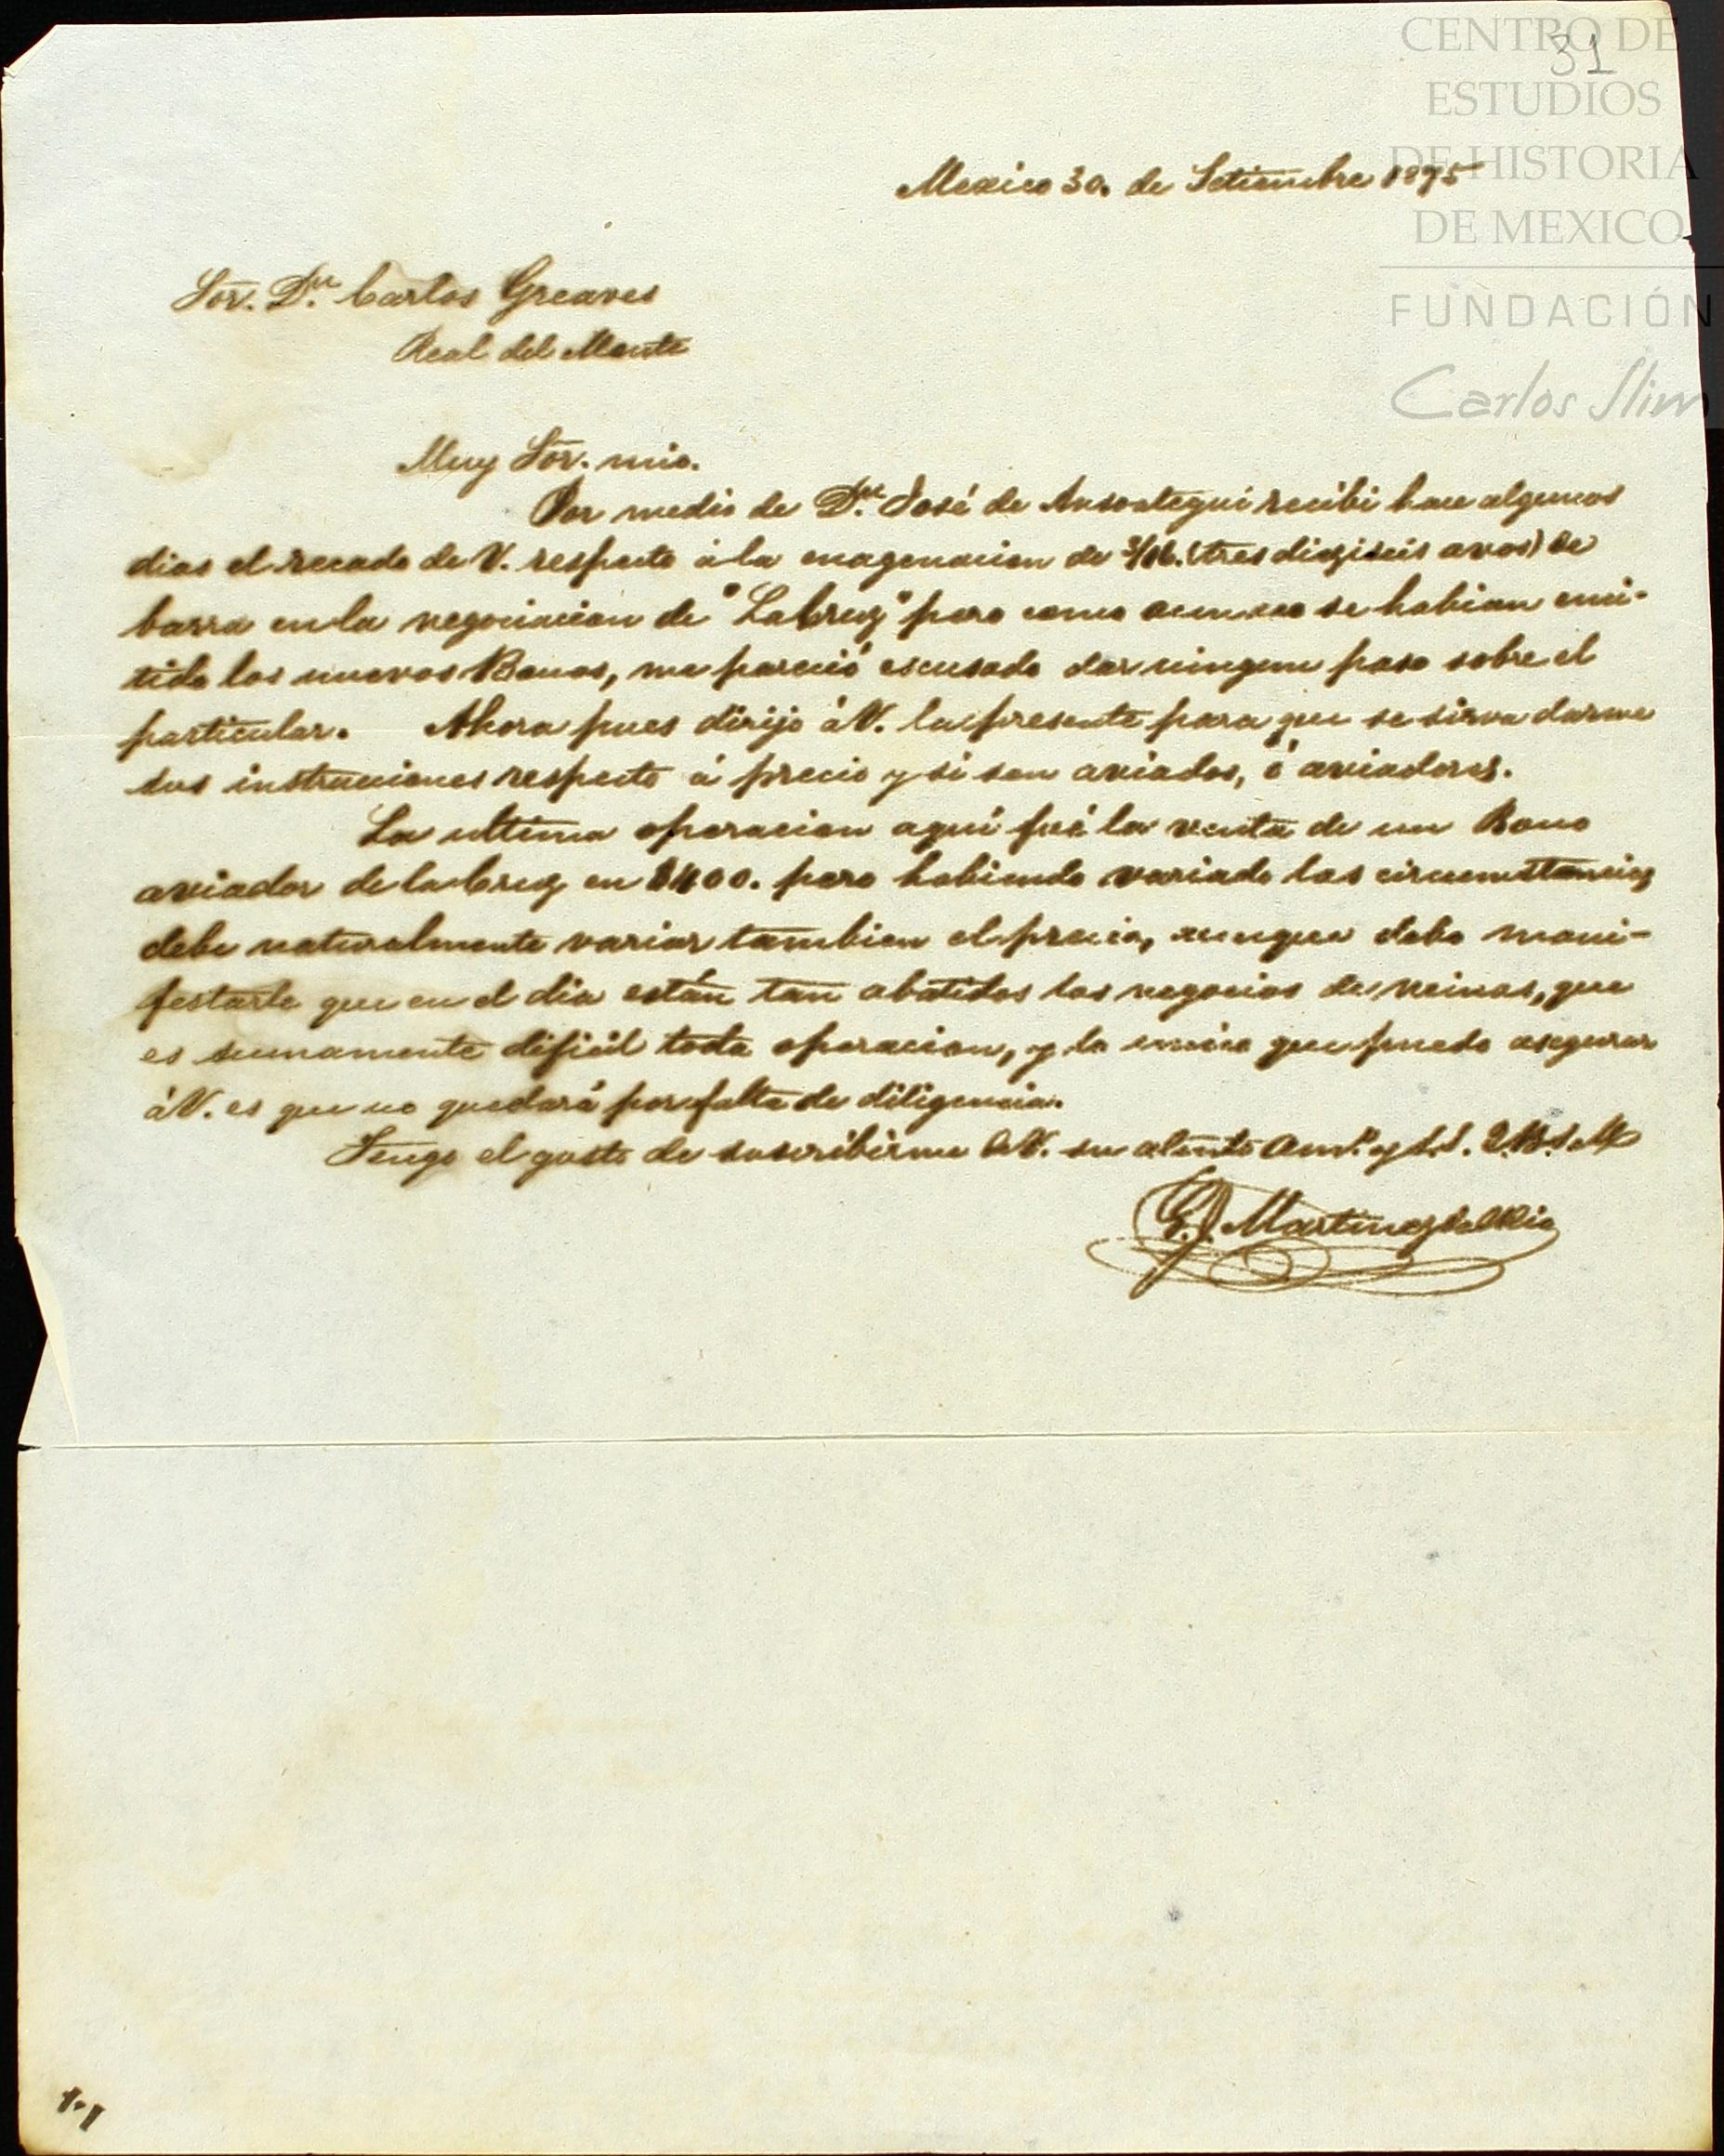 CENTRO DE
31
ESTUDIOS
DE HISTORIA
DE MEXICO
FUNDACIÓN
Carlos Slim
Mexico 30. de Setiembre 1875
Sor. Dn. Carlos Greaves
Real del Monte
Muy Sor. mio.
Por medio de Dn. José de Ansoategui recibi hace algunos
dias el recado de V. respecto á la enagenacion de 3/16. (tres dieziseis avos) de
barra en la negociacion de "La Cruz" pero como aun no se habian emi-
tido los nuevos Bonos, me pareció escusado dar ningun paso sobre el
particular. Ahora pues dirijo á V. la presente para que se sirva darme
sus instrucciones respecto á precio y si son aviados, ó aviadores.
La ultima operacion aquí fué la venta de un Bono
aviador de la Cruz en $400. pero habiendo variado las circumstancias
debe naturalmente variar tambien el precio, aunque debo mani-
festarle que en el dia están tan abatidos los negocios de minas, que
es sumamente dificil toda operacion, y lo unico que puedo asegurar
á V. es que no quedará por falta de diligencia.
Tengo el gusto de suscribirme de V. su atento Amo. y S.S. Q.B.S.M
Martinez del Rio
1-1